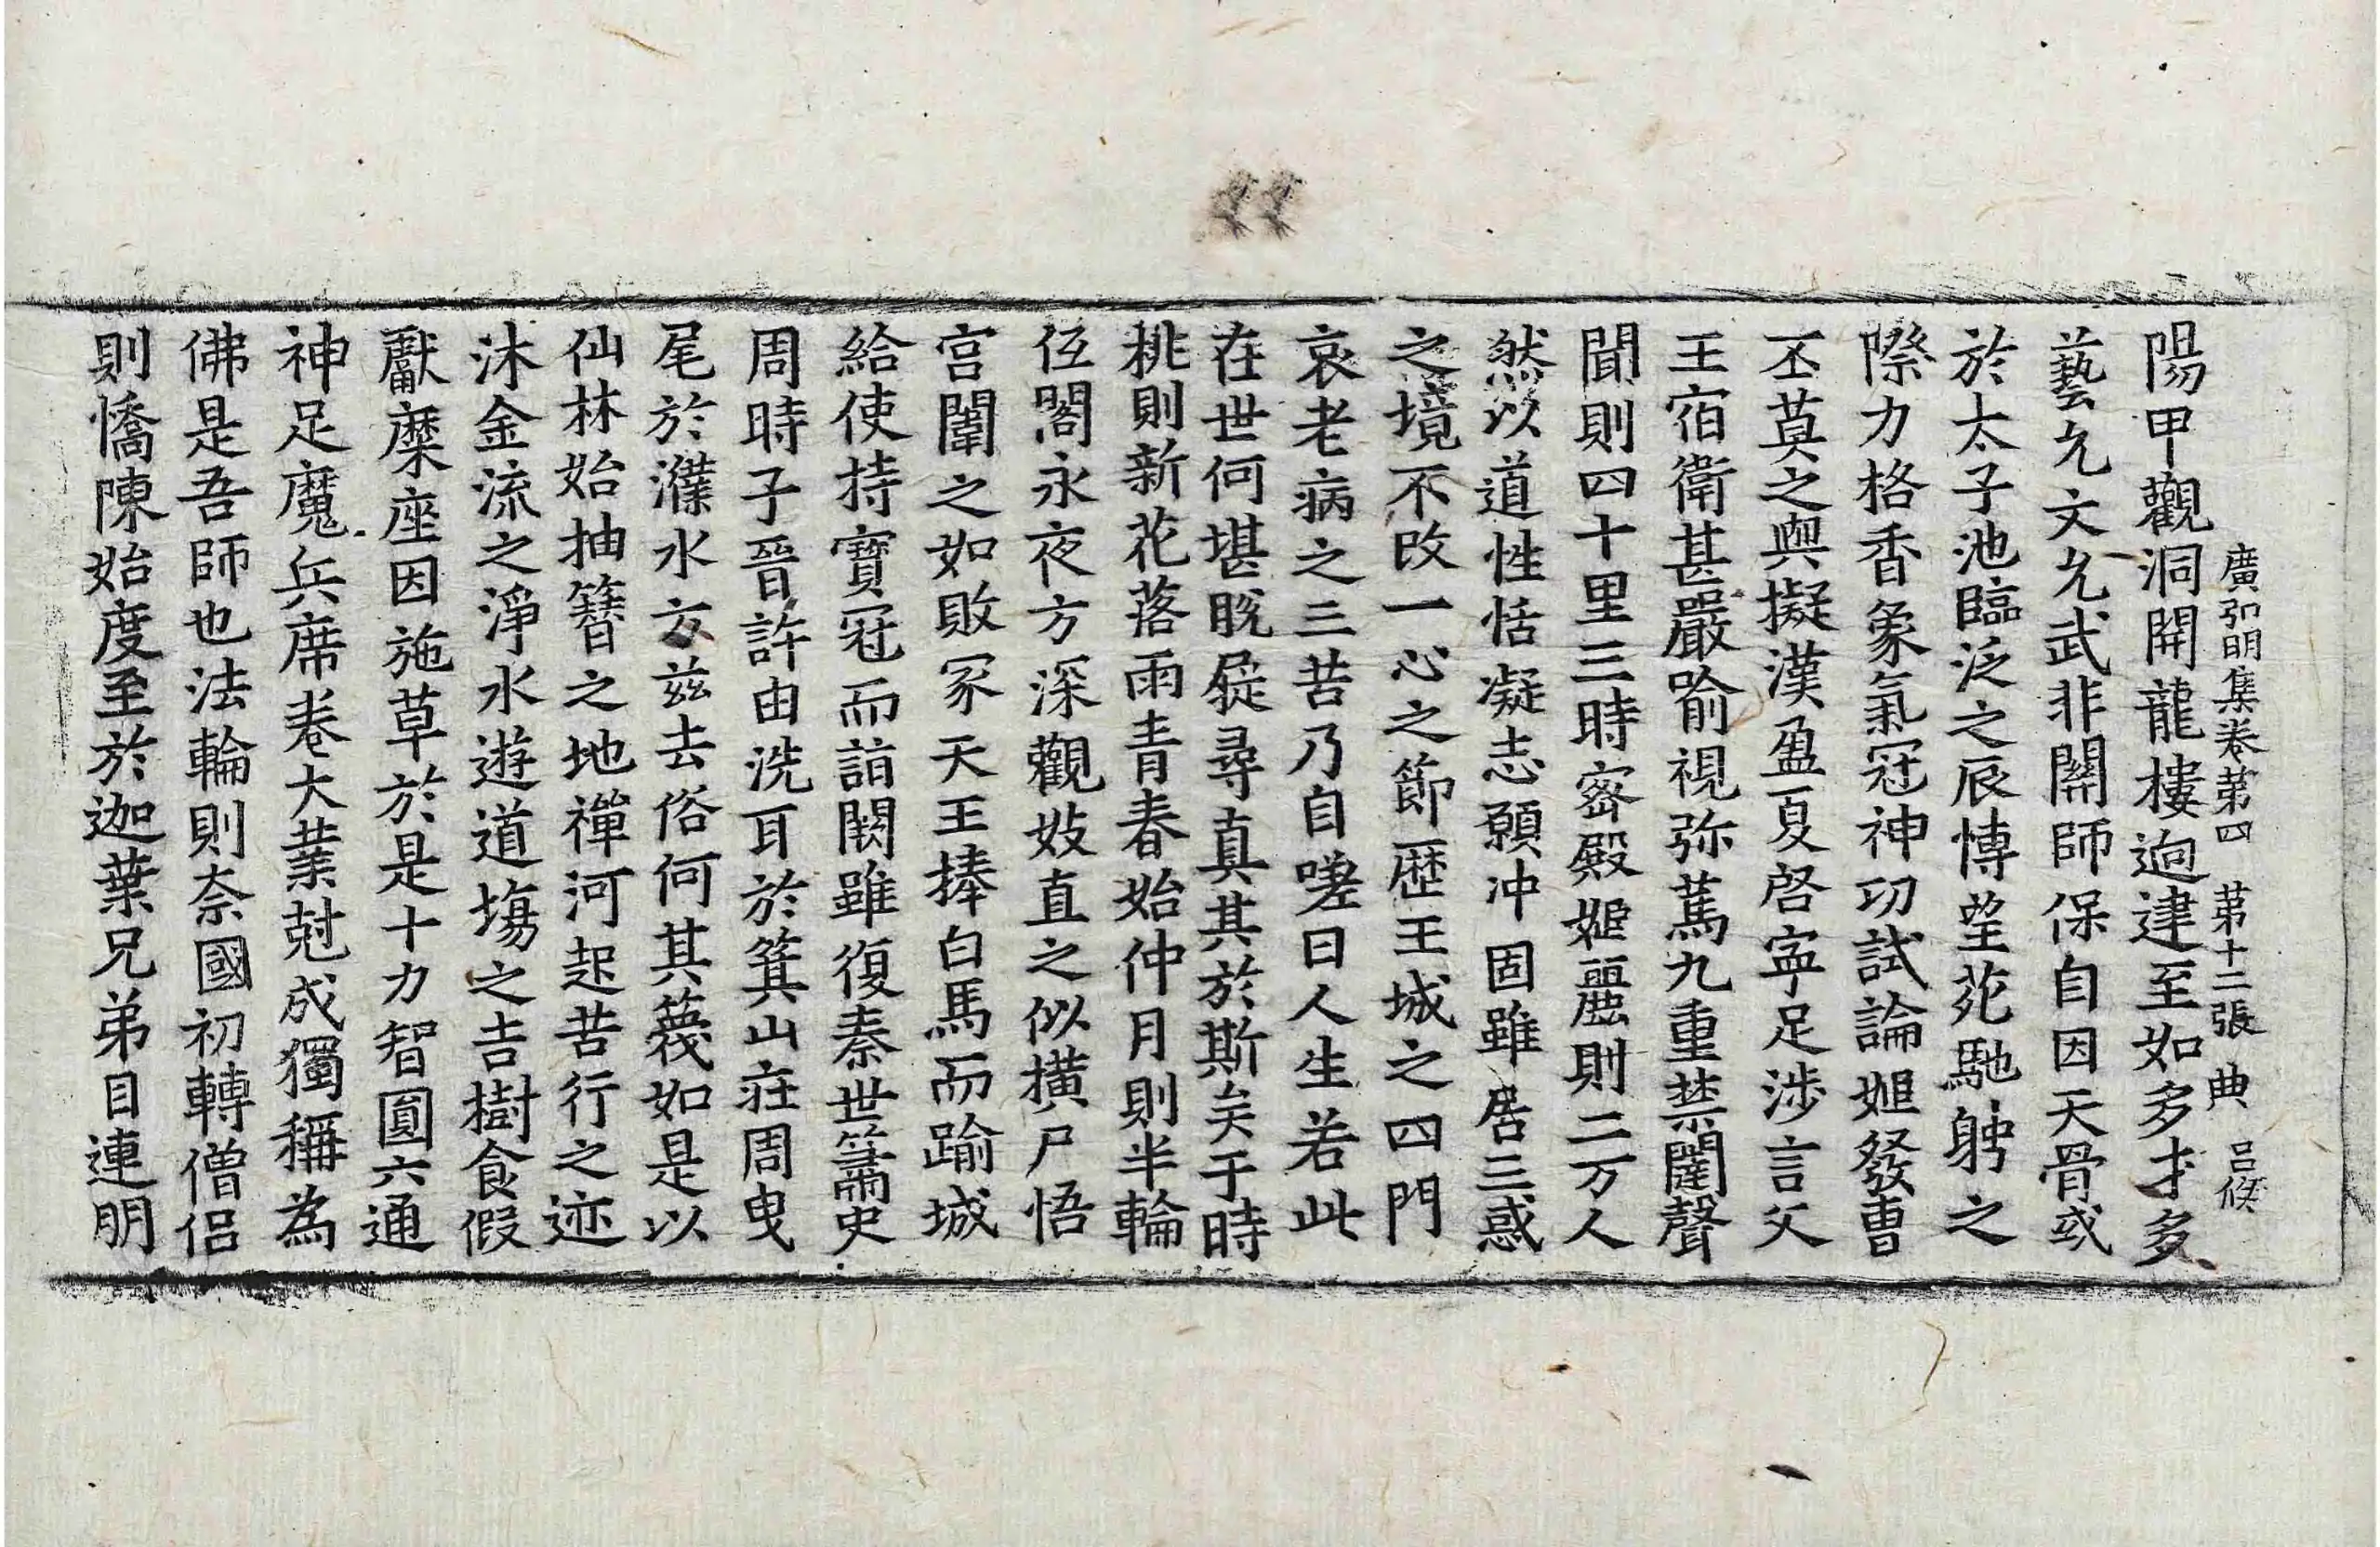 廣弘明集卷第四 第十二張 典 吕俊
陽甲觀洞開龍樓逈建至如多才多
藝允文允武非關師保自因天骨或
於太子池臨泛之辰愽望苑馳騁之
際力格香象氣冠神功試論姬發曹
丕莫之輿擬漢盈夏啓寜足涉言父
王宿衛甚嚴喻視弥萬九重禁闈聲
聞則四十里三時密殿姬麗則二万人
然以道性恬凝志願冲固雖居三惑
之境不改一心之節歷王城之四門
哀老病之三苦乃自嗟曰人生若此
在世何堪脫屣尋真其於斯矣于時
桃則新花落雨青春始仲月則半輪
低閣永夜方深觀妓直之似橫尸悟
宮闈之如敗冢天王捧白馬而踰城
給使持寶冠而詣闕雖復秦世簫史
周時子晉許由洗耳於箕山莊周曳
尾於濮水方兹去俗何其篾如是以
仙林始抽簪之地禪河起苦行之迹
沐金流之淨水遊道場之吉樹食假
獻糜座因施草於是十力智圓六通
神足魔兵席卷大業尅成獨稱為
佛是吾師也法輪則柰國初轉僧侣
則憍陳始度至於迦葉兄弟目連朋